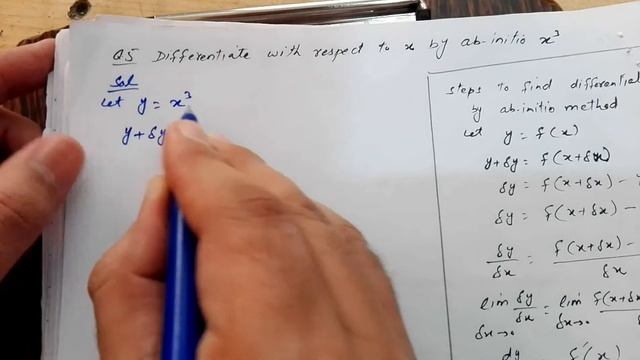 Q5 Differentiate with respect to x by ab-initio x³
Sol
Let y = x³
y + δy
steps to find differential
by ab-initio method
Let y = f(x)
y+δy = f(x+δx)
δy = f(x+δx) -
δy = f(x+δx) -
δy/δx = f(x+δx) - / δx
lim δx→0 δy/δx = lim δx→0 f(x+δx
dy f'(x)